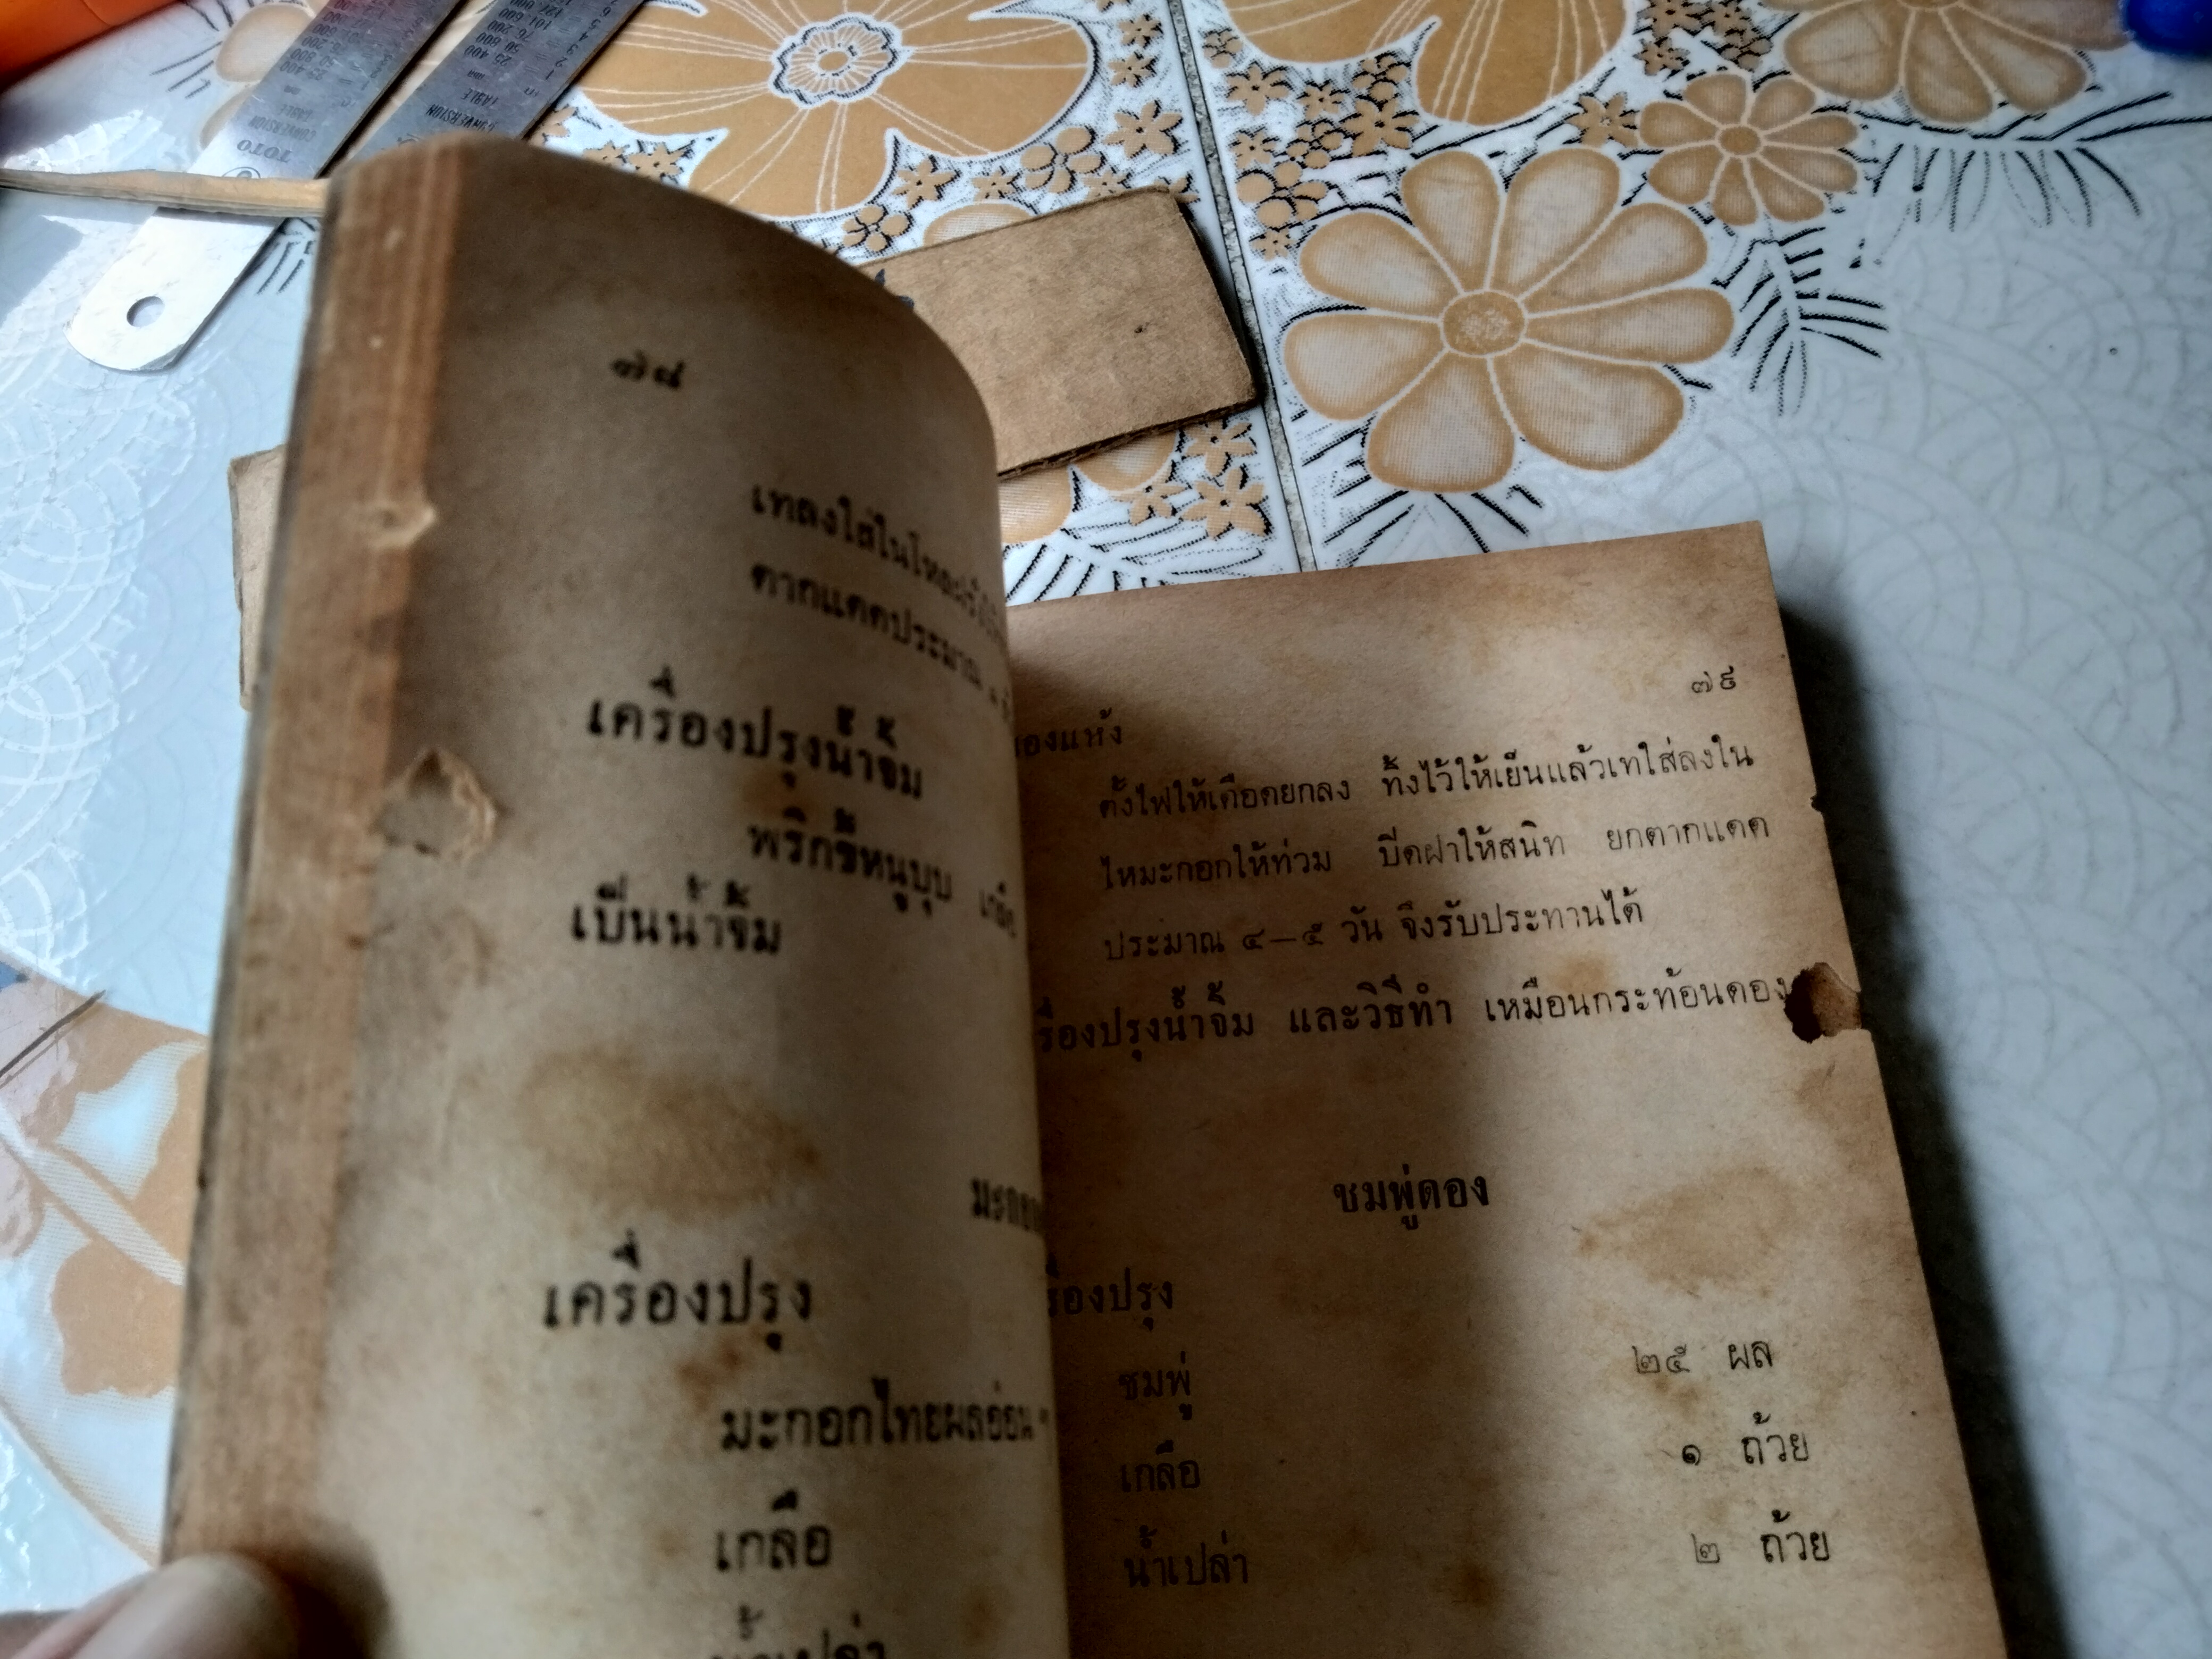 TOTO
CONVERSION
TABLE
CONVERSION
TABLE
๗๘
เทลงใส่ในไหกะให้
ตากแดดประมาณ
เครื่องปรุงน้ำจิ้ม
พริกขี้หนูบุบ เกลือ
เป็นน้ำจิ้ม
มะกอก
เครื่องปรุง
มะกอกไทยผลอ่อน
เกลือ
น้ำเปล่า
๗๙
ของแห้ง
ตั้งไฟให้เดือดยกลง ทิ้งไว้ให้เย็นแล้วเทใส่ลงใน
ไหมะกอกให้ท่วม ปิดฝาให้สนิท ยกตากแดด
ประมาณ ๔—๕ วัน จึงรับประทานได้
รื่องปรุงน้ำจิ้ม และวิธีทำ เหมือนกระท้อนดอง
ชมพู่ดอง
รื่องปรุง
ชมพู่ ๒๕ ผล
เกลือ ๑ ถ้วย
น้ำเปล่า ๒ ถ้วย